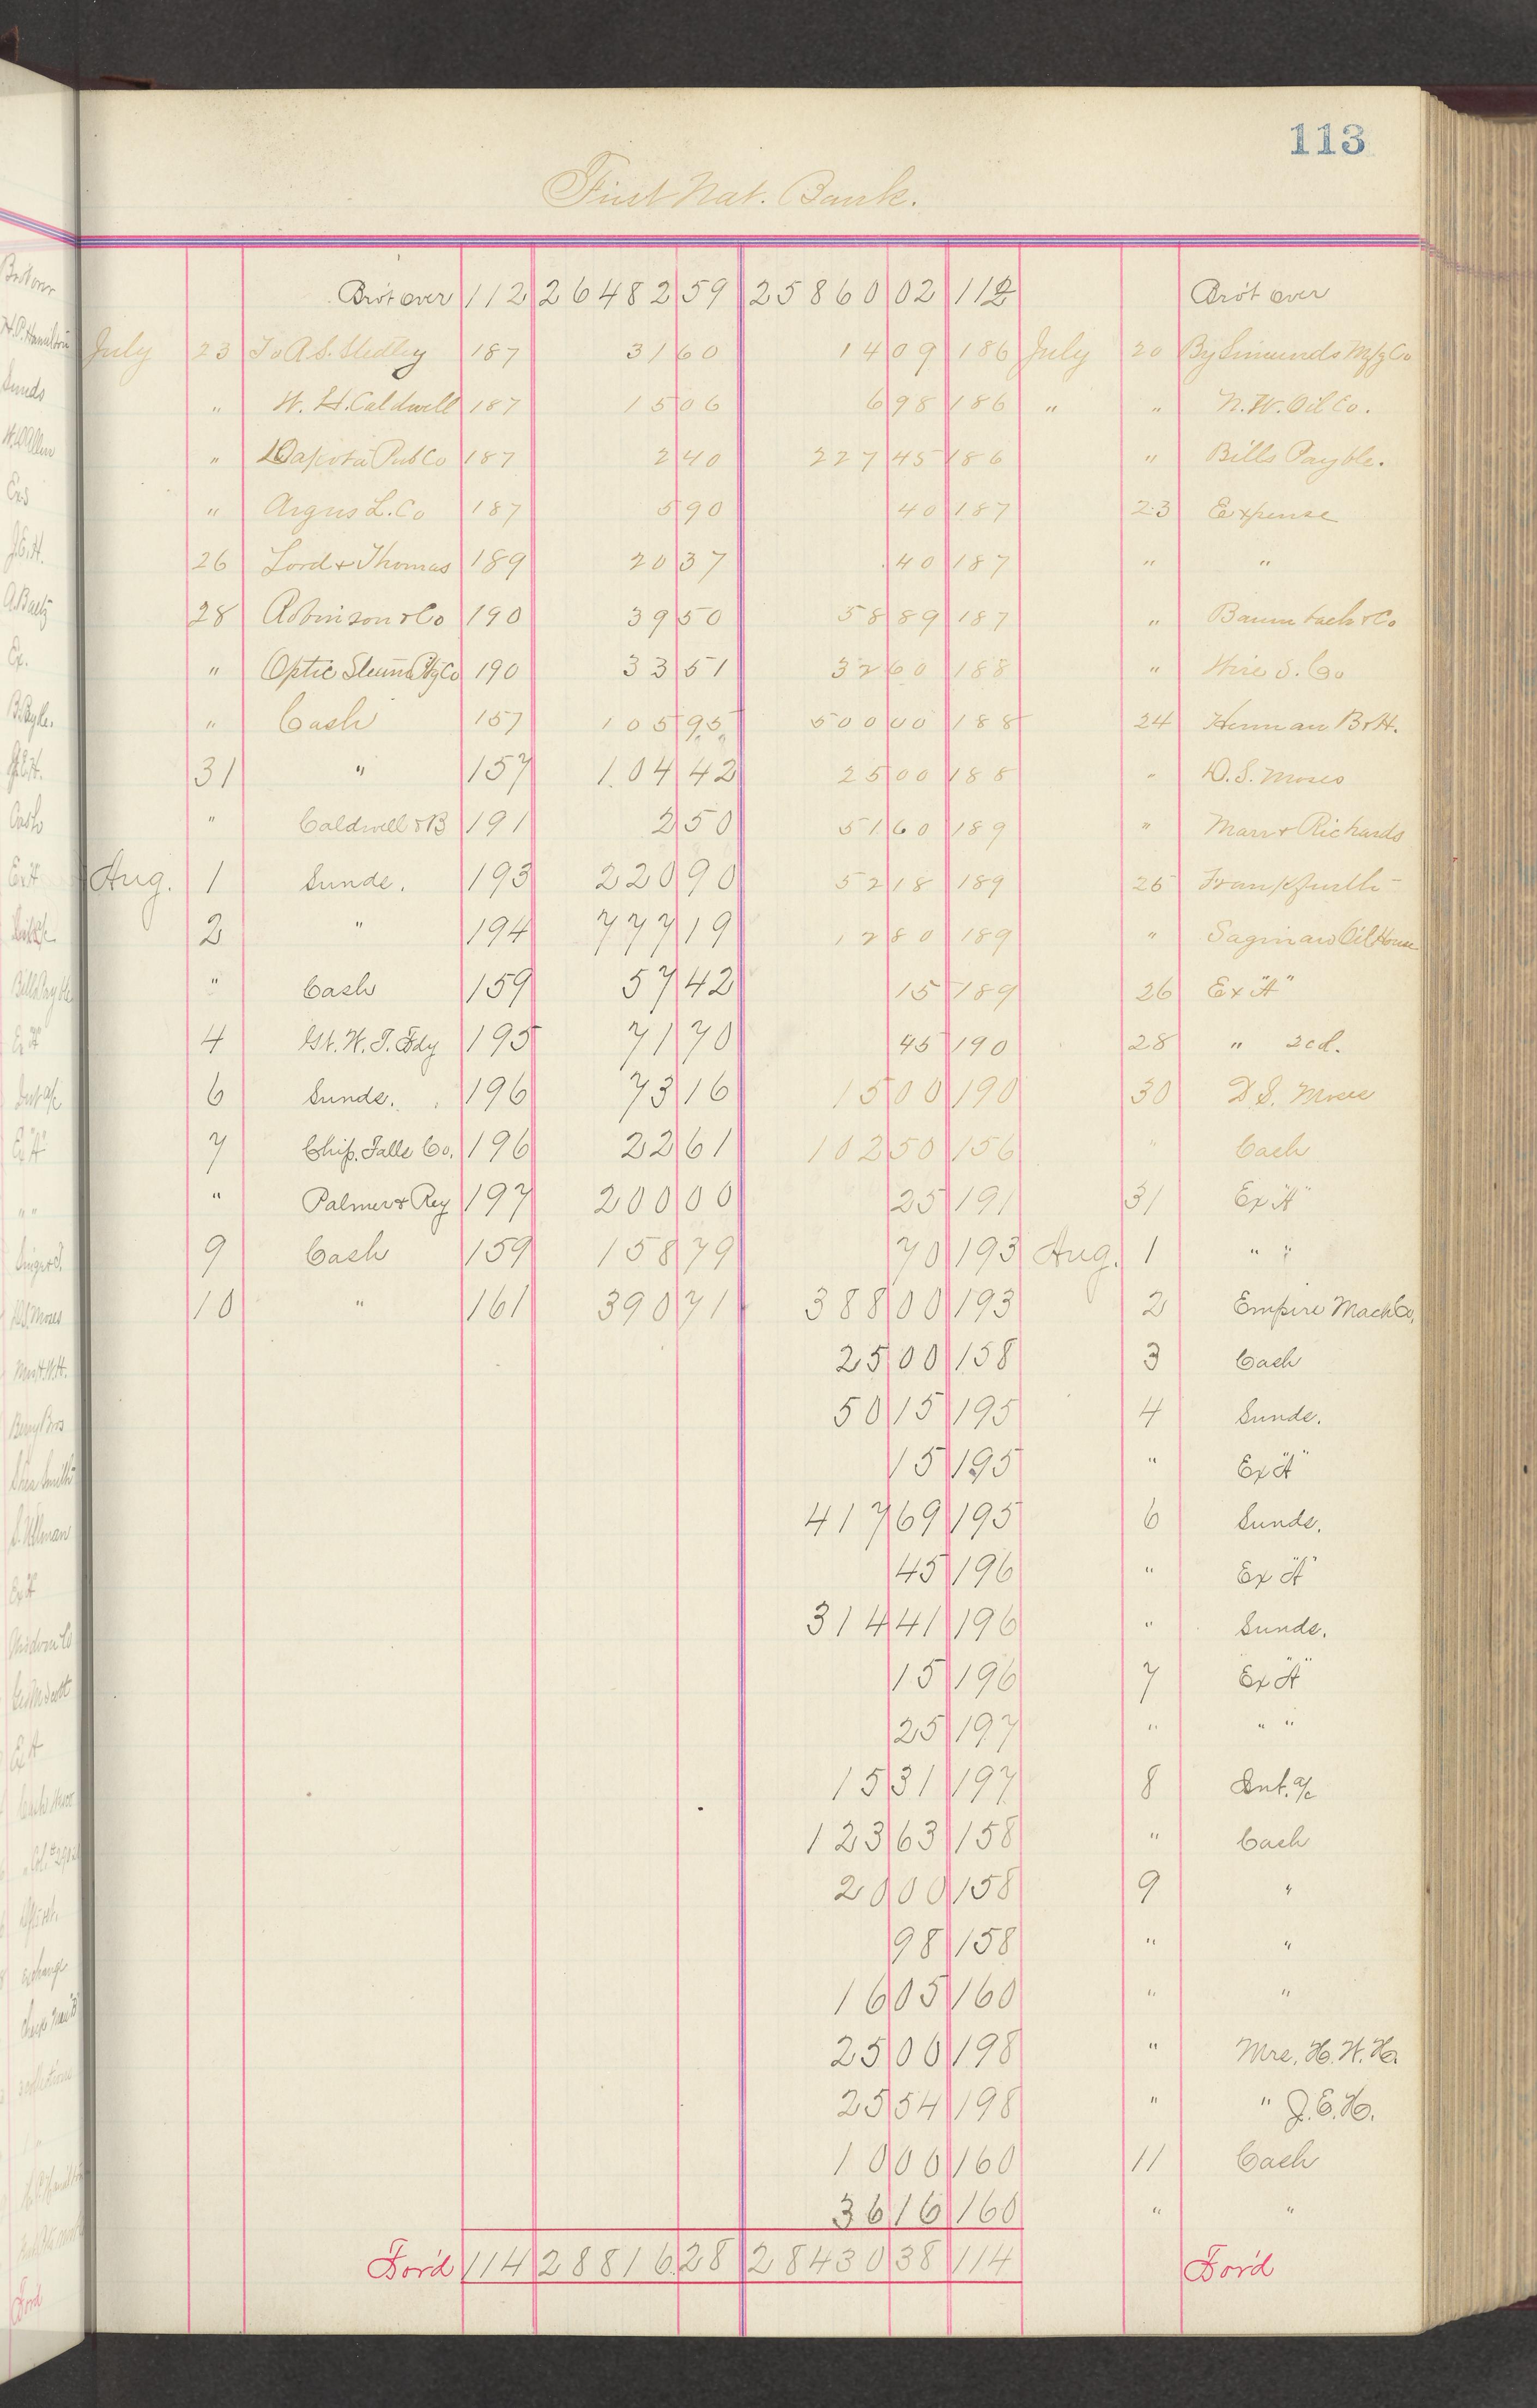 113
First Nat. Bank.
Bro't over 112 26482 59 25860 02 112 Bro't over
July 23 To A. S. Hedley 187 31 60 14 09 186 July 20 By Simunds Mfg Co
" W. H. Caldwell 187 15 06 6 98 186 " " N. W. Oil Co.
" Dakota Pub Co 187 2 40 227 45 186 " Bills Payble.
" Argus L. Co 187 5 90 40 187 23 Expense
26 Lord & Thomas 189 20 37 40 187 " "
28 Robinson & Co 190 39 50 58 89 187 " Baumbach & Co
" Optic 190 33 51 32 60 188 " Wire S. Co
" Cash 157 105 95 500 00 188 24 Herman B & H.
31 " 157 104 42 25 00 188 " D. S. Moses
" Caldwell & B 191 2 50 51 60 189 " Marr & Richards
Aug. 1 Sunds. 193 220 90 52 18 189 26 Frankfurth
2 " 194 777 19 12 80 189 " Saginaw Oil House
" Cash 159 57 42 15 189 26 Ex "A"
4 Gt. W. T. Fdy 195 71 70 45 190 28 " 2cd.
6 Sunds. 196 73 16 15 00 190 30 D. S. Moses
7 Chip. Falls Co. 196 22 61 102 50 156 " Cash
" Palmer & Rey 197 200 00 25 191 31 Ex "A"
9 Cash 159 158 79 70 193 Aug. 1 " "
10 " 161 390 71 388 00 193 2 Empire Mach Co,
25 00 158 3 Cash
50 15 195 4 Sunds.
15 195 " Ex "A"
417 69 195 6 Sunds.
45 196 " Ex "A"
314 41 196 " Sunds.
15 196 7 Ex "A"
25 197 " " "
15 31 197 8 Int. a/c
123 63 158 " Cash
20 00 158 9 "
98 158 " "
16 05 160 " "
25 00 198 " Mrs. H. W. H.
25 54 198 " " J. E. H.
10 00 160 11 Cash
36 16 160 " "
For'd 114 28816 28 28430 38 114 For'd